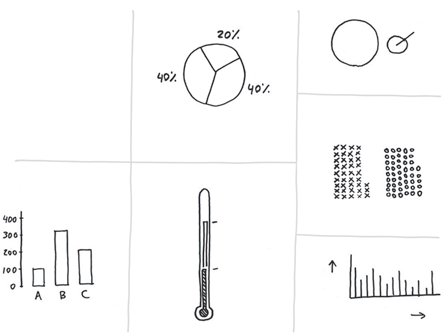 20%
40%
40%
400
300
200
100
0
A B C